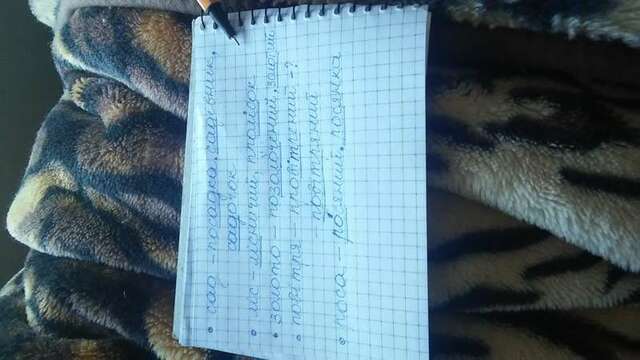 • сад - посадка, садівник,
садочок
• ліс - лісничий, пролісок
• золото - позолочений, золотий
• повітря - провітрений - ?
- повітряний
• роса - росяний, росянка